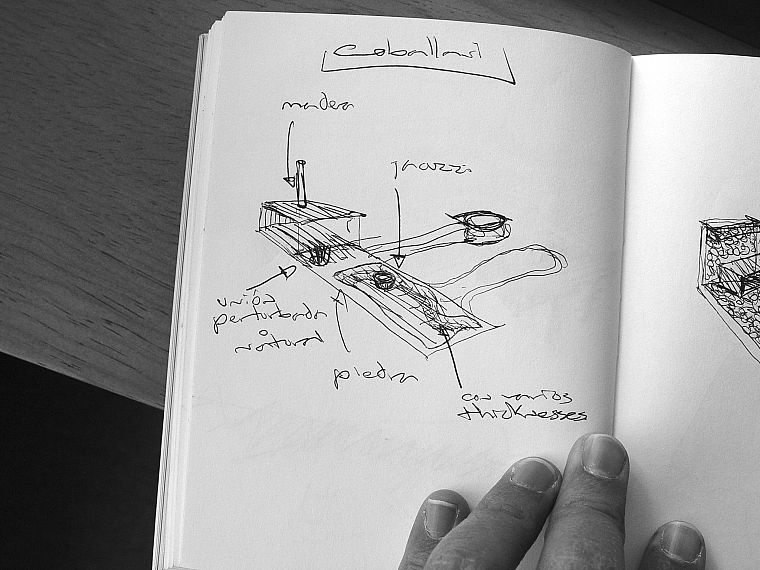 Ceballari
madera
jacuzzi
unión
perturbada
o
natural
piedra
con varios
thicknesses